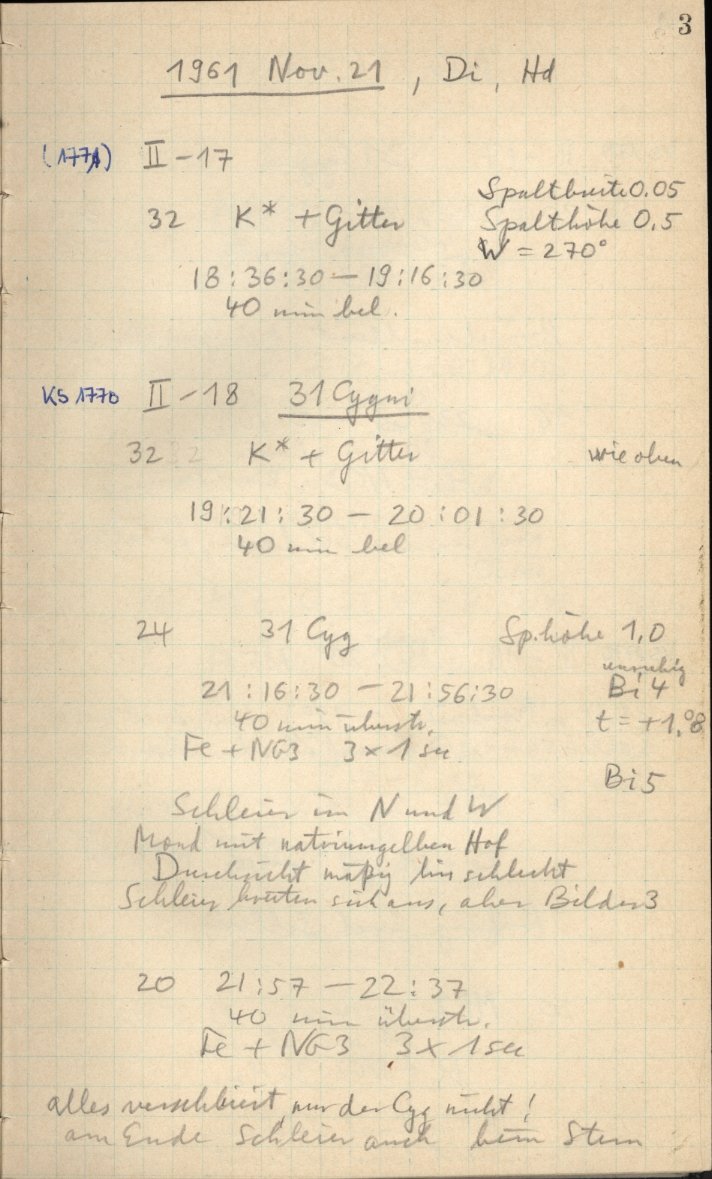 3
1961 Nov. 21, Di, Hd
(1771) II-17
Spaltbreite 0.05
32 K* + Gitter Spalthöhe 0,5
W = 270°
18:36:30 — 19:16:30
40 min bel.
KS 1770 II-18 31 Cygni
32 K* + Gitter wie oben
19:21:30 — 20:01:30
40 min bel
24 31 Cyg Sp.höhe 1,0
unruhig
21:16:30 — 21:56:30 Bi 4
40 min überstr. t = +1,°8
Fe + NG3 3 x 1 sec
Bi 5
Schleier im N und W
Mond mit natriumgelben Hof
Durchsicht mäßig bis schlecht
Schleier breiten sich aus, aber Bilder 3
20 21:57 — 22:37
40 min überstr.
Fe + NG3 3 x 1 sec
alles verschliert, nur der Cyg nicht!
am Ende Schleier auch beim Stern